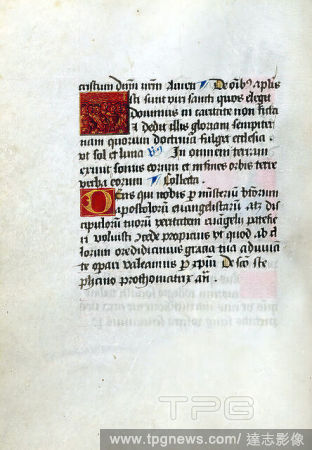 cristum dnm nrm Amen De oib9 aplis
Isti sunt viri sancti quos elegit
dominus in caritate non ficta
dedit illis gloriam sempiter
nam quorum doctrina fulget ecclesia
ut sol et luna In omnem terram
exivit sonus eorum et in fines orbis terre
verba eorum Collecta
Deus qui nobis p misteriu btorum
apostolorū evangelistarū atz di
scipulorū tuorū veritatem evangelii patefie
ri voluisti propicius ut quod ab il
lorum credidicimus gracia tua adiuva
te opari valeamus p xpm De sco ste
phano prothomartire an
TPG
www.tpgnews.com/達志影像